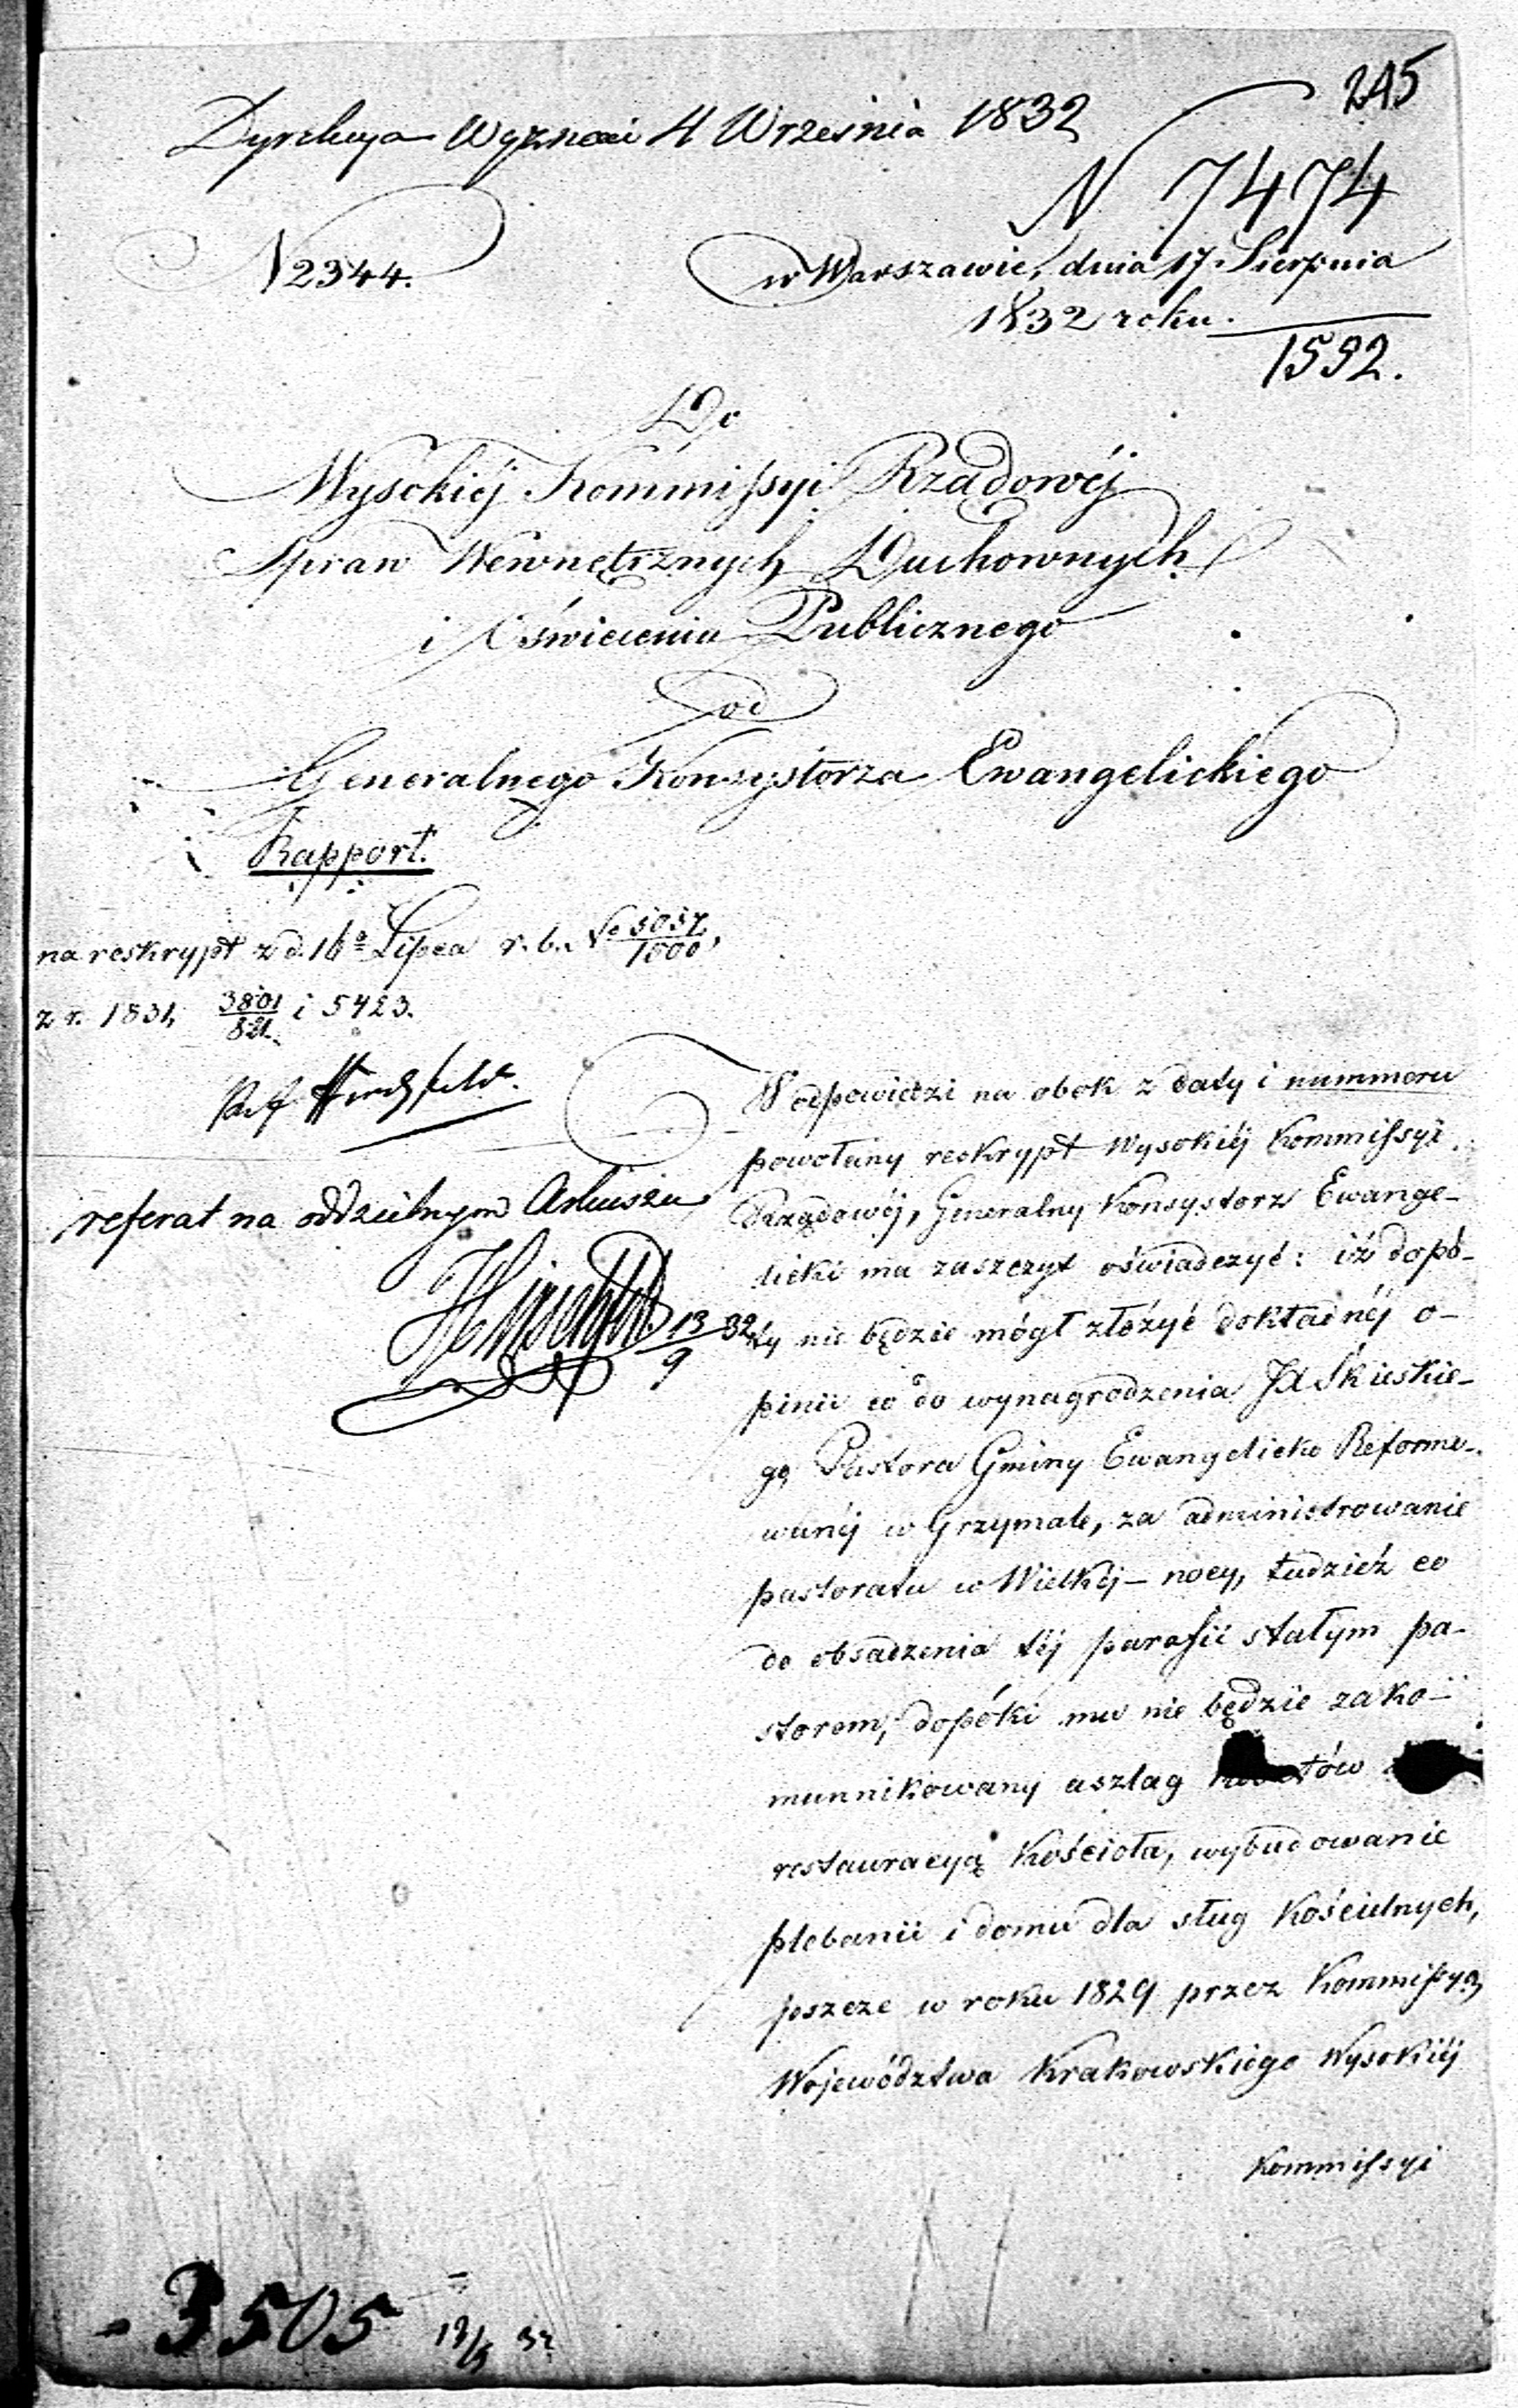 245
Dyrekcya Wyznań 4 Września 1832
N 7474
N 2344.
w Warszawie, dnia 17. Sierpnia
1832 roku.
1592.
Do
Wysokiéj Kommissyi Rządowéj
Spraw Wewnętrznych Duchownych
i Oświecenia Publicznego
od
Generalnego Konsystorza Ewangelickiego
Rapport.
na reskrypt z d. 16º Lipca r. b. No 5057/1000,
z r. 1831, 3801/821. i 5423.
Ref.
referat na oddzielnym Arkuszu
13/9 32
W odpowiedzi na obok z daty i nummeru
powołany reskrypt Wysokiéj Kommissyi
Rządowéj, Generalny Konsystorz Ewange-
licki ma zaszczyt oświadczyć: iż dopó-
ty nie będzie mógł złożyć dokładnéj o-
pinii co do wynagrodzenia JX Skierskie-
go, Pastora Gminy Ewangelicko Reformo-
wanéj w Grzymale, za administrowanie
pastoratu w Wielkéj-nocy, tudzież co
do obsadzenia téj parafii stałym pa-
storem, dopóki mu nie będzie zako-
munnikowany aszlag
restauracyą Kościoła, wybudowanie
plebanii i domu dla sług Kościelnych,
jeszcze w roku 1829 przez Kommissyą
Województwa Krakowskiego Wysokiéj
Kommissyi
3505